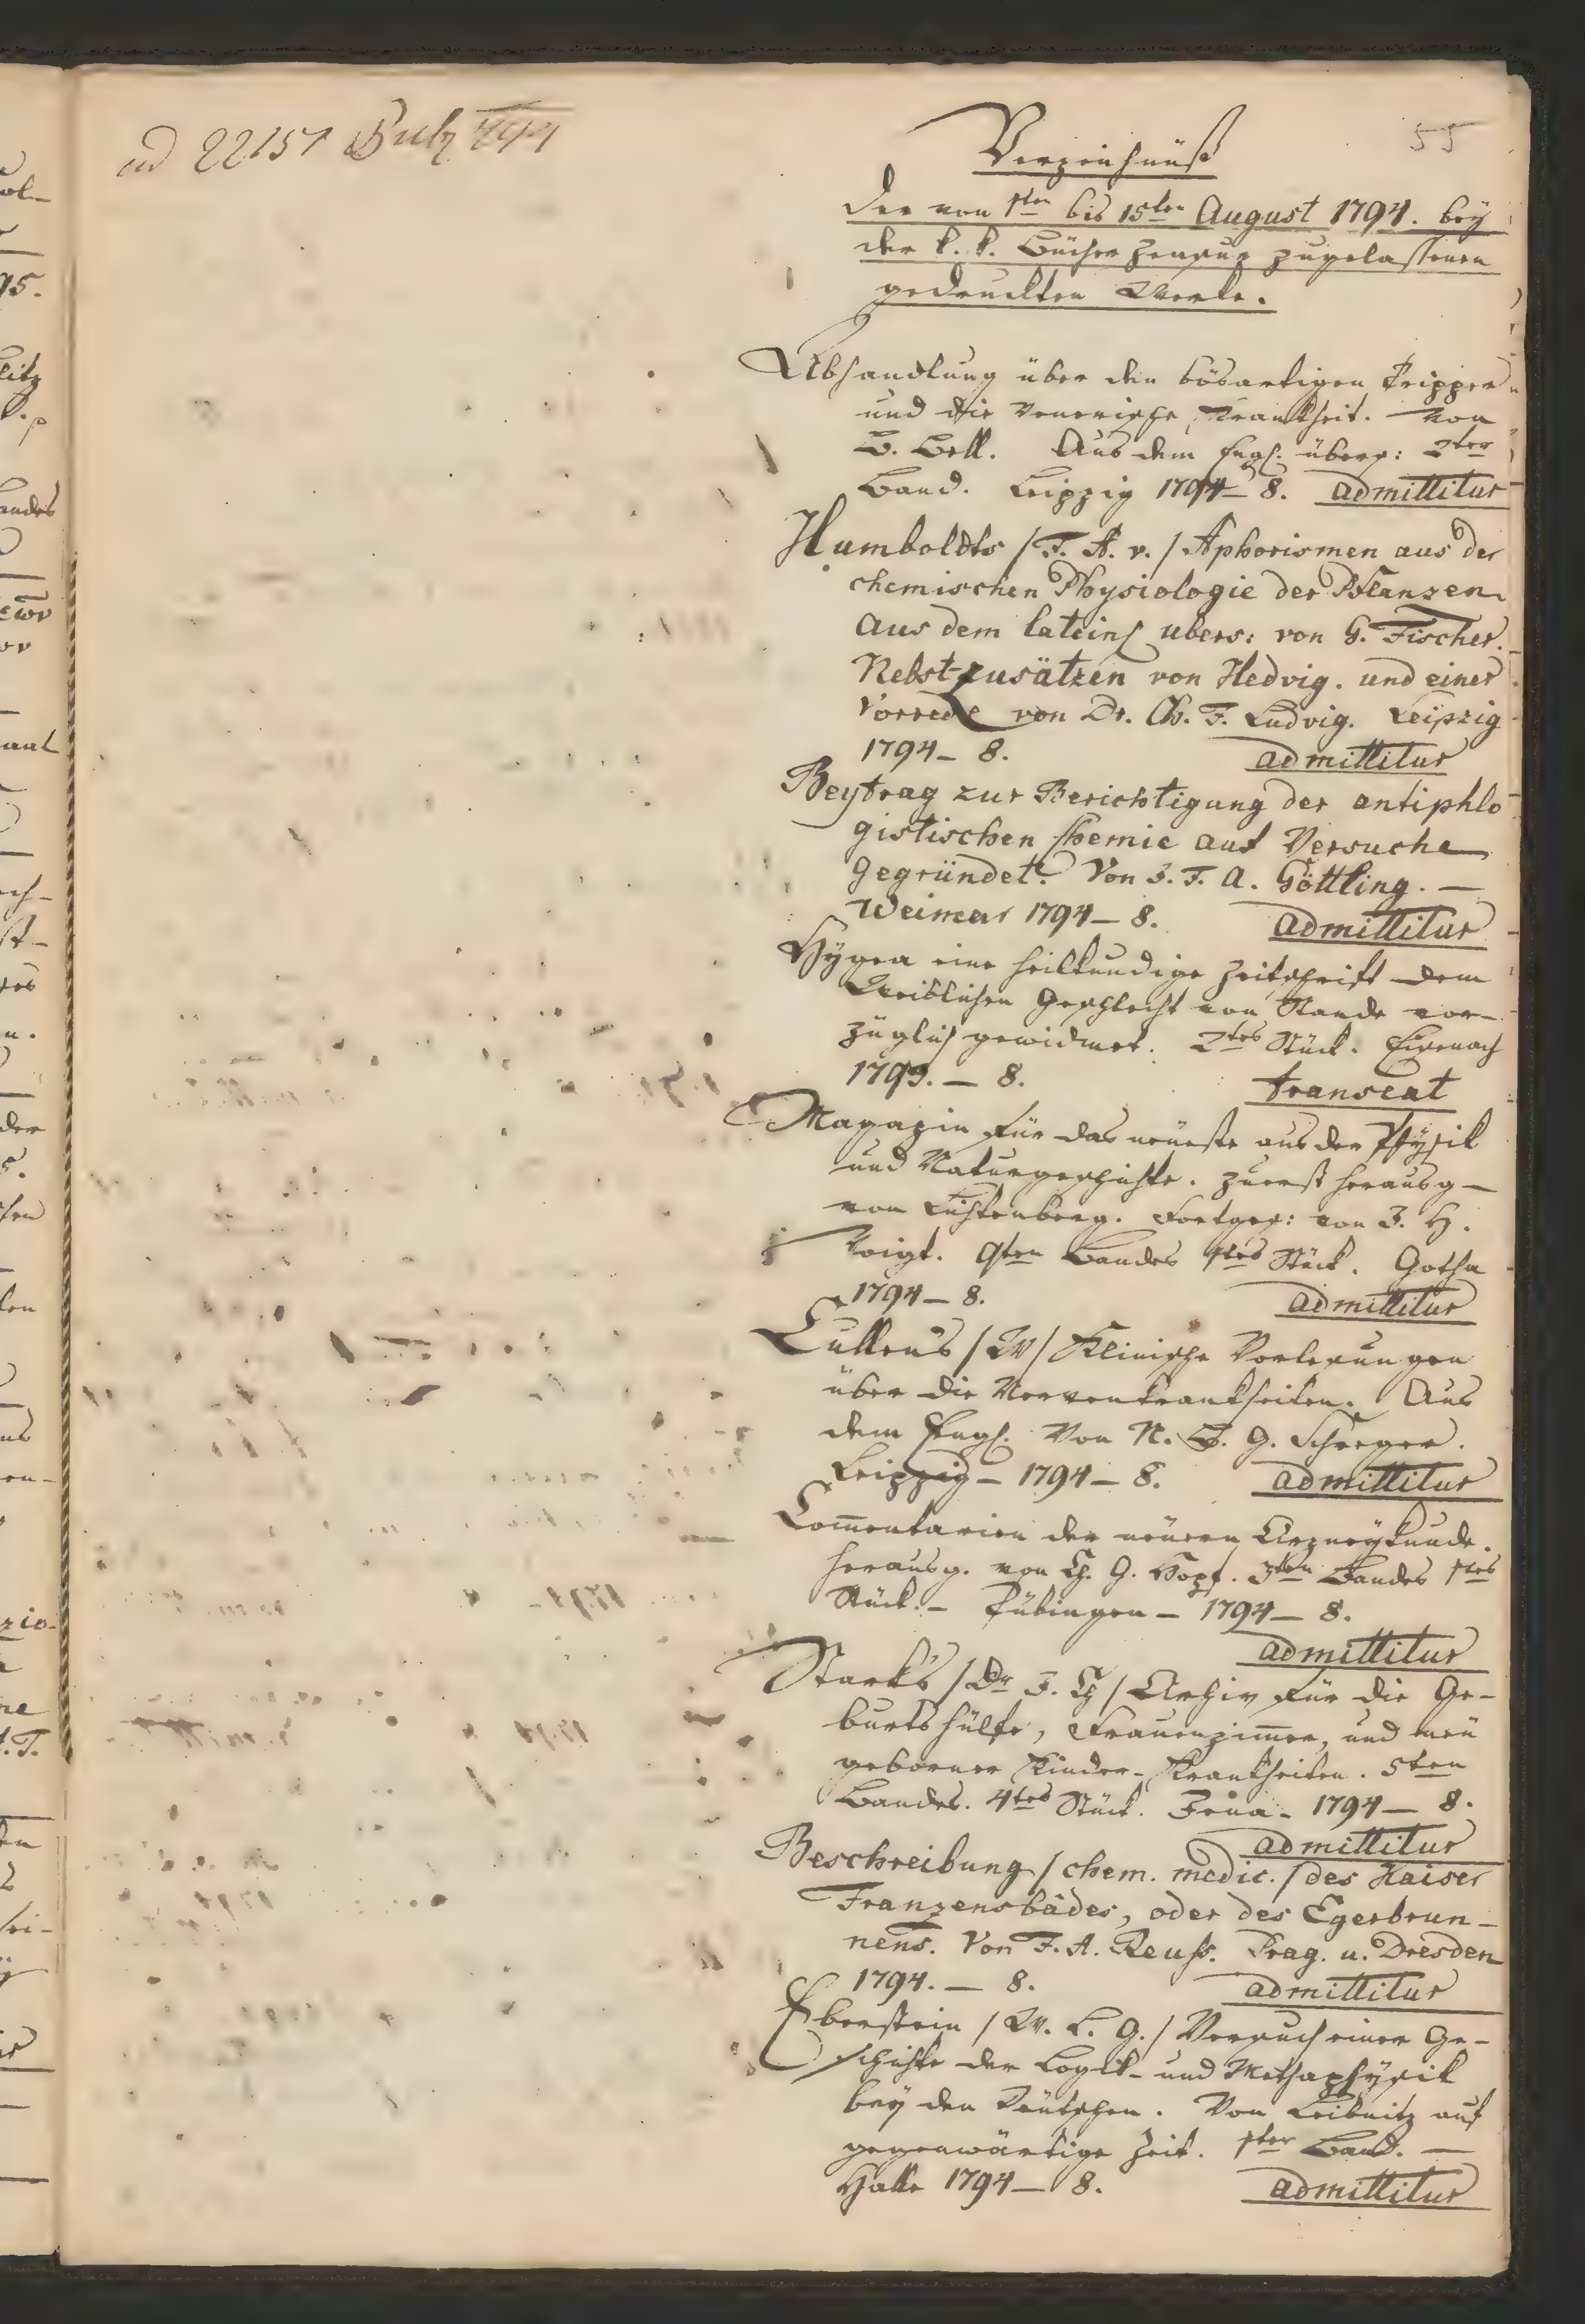 ad 22151
55
Verzeichnüß
der von 1ten bis 15ten August 1794. beÿ
der k. k. Bücher Zensur zugelassenen
gedruckten Werke.
Abhandlung über den bösartigen Tripper
und die venerische Krankheit. Von
B. Bell. Aus dem Engl. übers: 2ter
Band. Leipzig 1794 – 8. admittitur
Humboldts /F. A. v./ Aphorismen aus der
chemischen Physiologie der Pflanzen
aus dem latein. ubers: von G. Fischer.
Nebst Zusätzen von Hedvig. und einer
Vorrede von Dr. Ch. F. Ludvig. Leipzig
1794 – 8. admittitur
Beytrag zur Berichtigung der antiphlo
gistischen Chemie auf Versuche
gegründet. Von J. F. A. Göttling. —
Weimar 1794 – 8. admittitur
Hÿgea eine heilkundige Zeitschrift dem
Weiblichen Geschlecht von Stande vor-
züglich gewidmet. 2tes Stück. Eisenach
1793. – 8. transeat
Magazin für das neüeste aus der Phÿsik
und Naturgeschichte. zuerst herausg –
von Lichtenberg. Fortges: von J. H.
Voigt. 9ten Bandes 1tes Stück. Gotha
1794 – 8. admittitur
Cullens /W/ Klinische Vorlesungen
über die Nervenkrankheiten. Aus
dem Engl. Von N. B. G. Schreger.
Leipzig – 1794 – 8. admittitur
Com̄entarien der neüern Arzneÿkunde.
herausg. von Ch. G. Hopf. 3ten Bandes 1tes
Stück. – Tübingen – 1794 – 8.
admittitur
Stark's /Dr J. Ch/ Archiv für die Ge-
burtshülfe, Frauenzim̄er, und neü
geborner Kinder-Krankheiten. 5ten
Bandes. 4tes Stück. Jena – 1794 – 8.
admittitur
Beschreibung /chem. medic./ des Kaiser
Franzensbades, oder des Egerbrun-
nens. Von F. A. Reuss. Prag. u. Dresden
1794. – 8. admittitur
Eberstein /W. L. G./ Versuch einer Ge-
schichte der Logik- und Methaphÿsik
beÿ den Deütschen. Von Leibnitz auf
gegenwärtige Zeit. 1ter Band. —
Halle 1794 – 8. admittitur